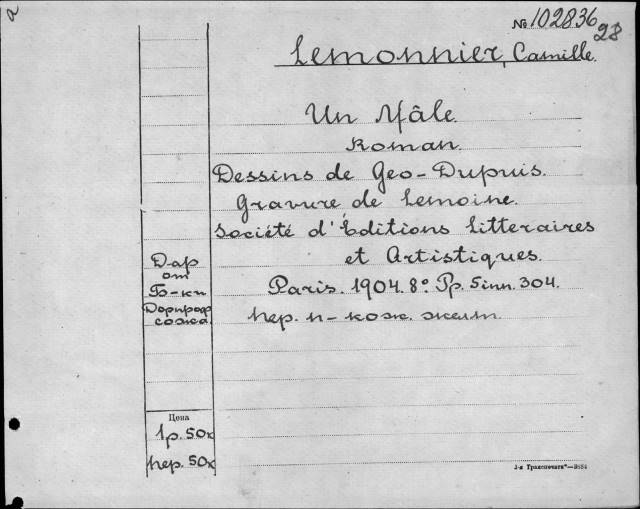 № 102836
28
Lemonnier, Camille.
Un Mâle.
Roman.
Dessins de Geo-Dupuis.
Gravure de Lemoine.
Société d'Éditions Litteraires
et Artistiques.
Paris. 1904. 8° Pp. 5inn. 304.
пер. п-кож. желт.
Дар
от
Б-ки
Дорпроф
сожа.
Цена
1р. 50к
пер. 50к